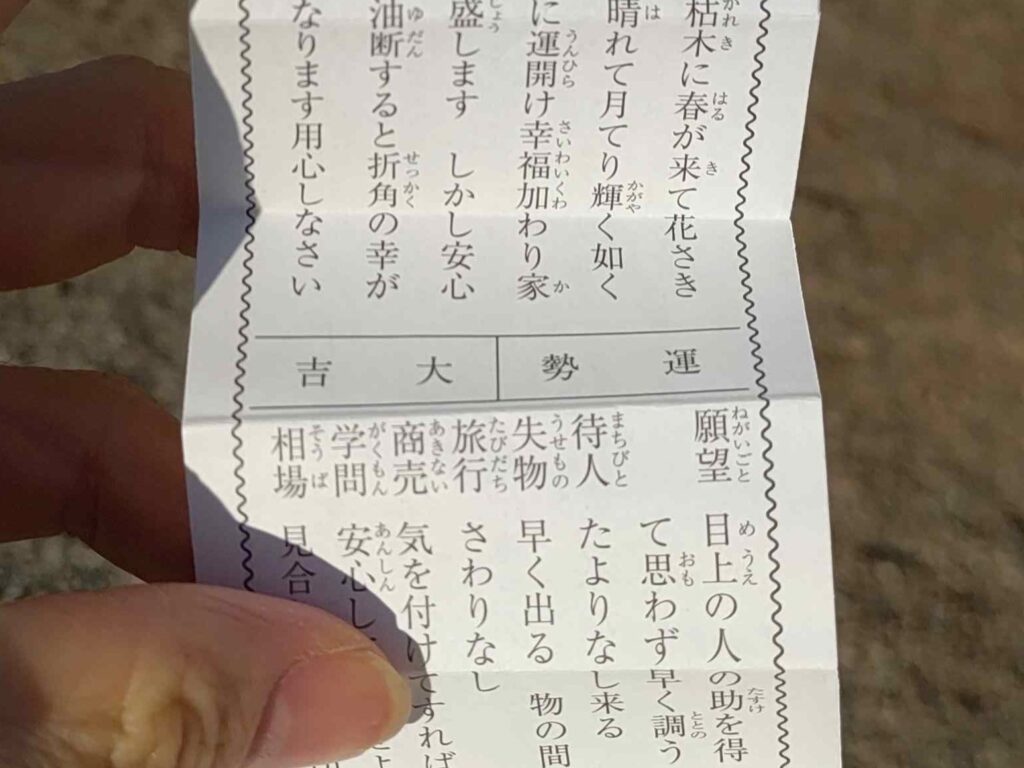 枯木に春が来て花さき
晴れて月てり輝く如く
に運開け幸福加わり家
盛します しかし安心
油断すると折角の幸が
なります用心しなさい
運勢 大吉
願望 目上の人の助を得
て思わず早く調う
待人 たよりなし来る
失物 早く出る 物の間
旅行 さわりなし
商売 気を付けてすれば
学問 安心し
相場 見合